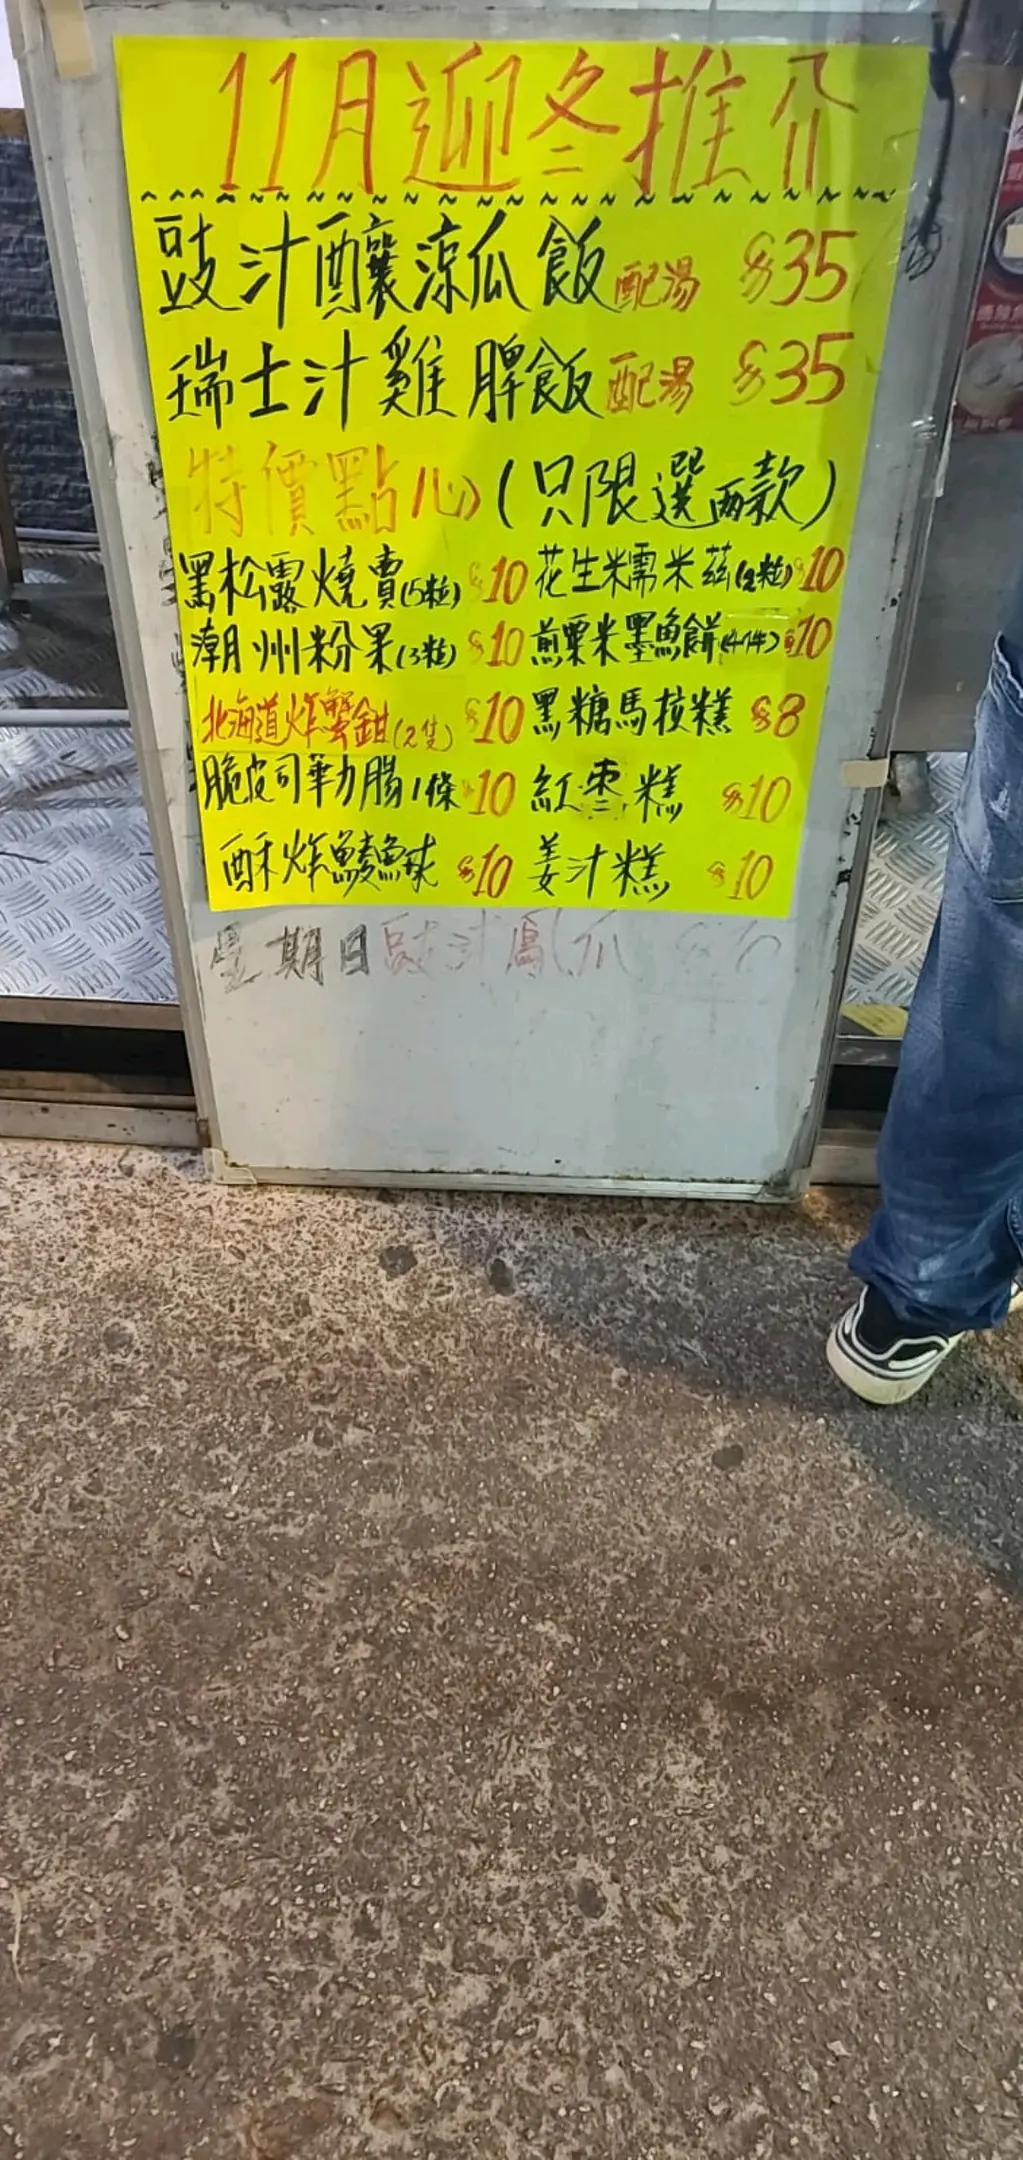 11月迎冬推介
豉汁釀涼瓜飯配湯 $35
瑞士汁雞脾飯配湯 $35
特價點心(只限選兩款)
黑松露燒賣(5粒) $10 花生糯米茲(2粒) $10
潮州粉果(3粒) $10 煎粟米墨魚餅(4件) $10
北海道炸蟹鉗(2隻) $10 黑糖馬拉糕 $8
脆皮司華力腸1條 $10 紅棗糕 $10
酥炸鯪魚球 $10 姜汁糕 $10
星期日豉汁鳳爪